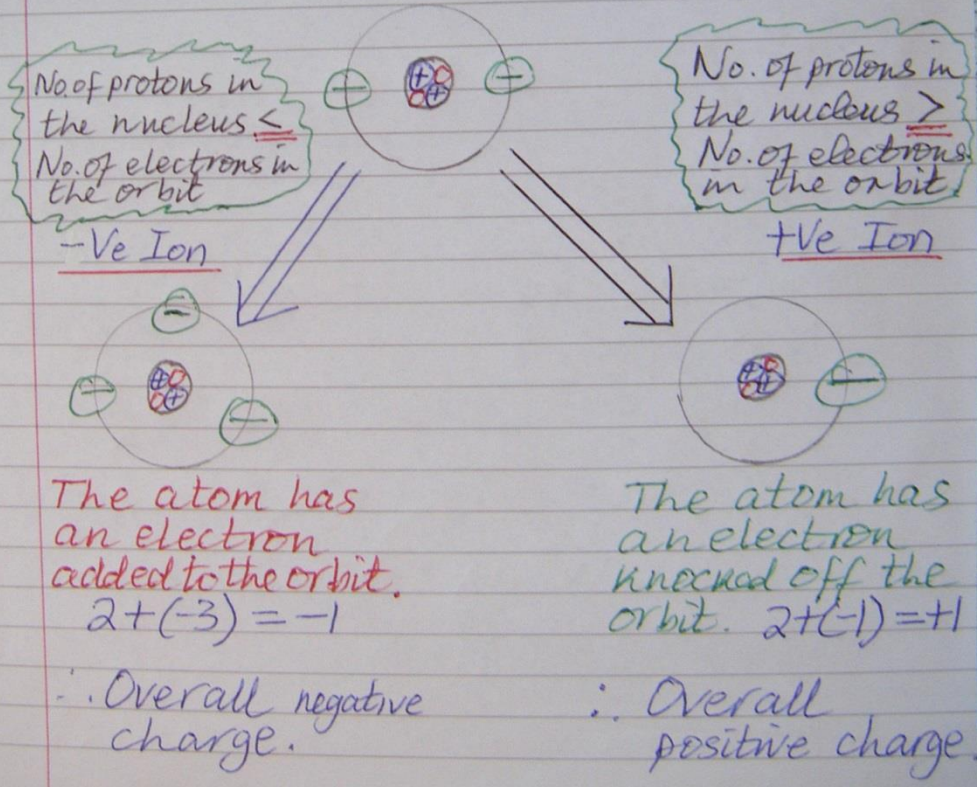 No. of protons in
the nucleus <
No. of electrons in
the orbit
-Ve Ion
No. of protons in
the nucleus >
No. of electrons
in the orbit
+Ve Ion
+
+
-
-
+
+
-
-
-
+
+
-
The atom has
an electron
added to the orbit.
2+(-3) = -1
∴ Overall negative
charge.
The atom has
an electron
knocked off the
orbit. 2+(-1)=+1
∴ Overall
positive charge.